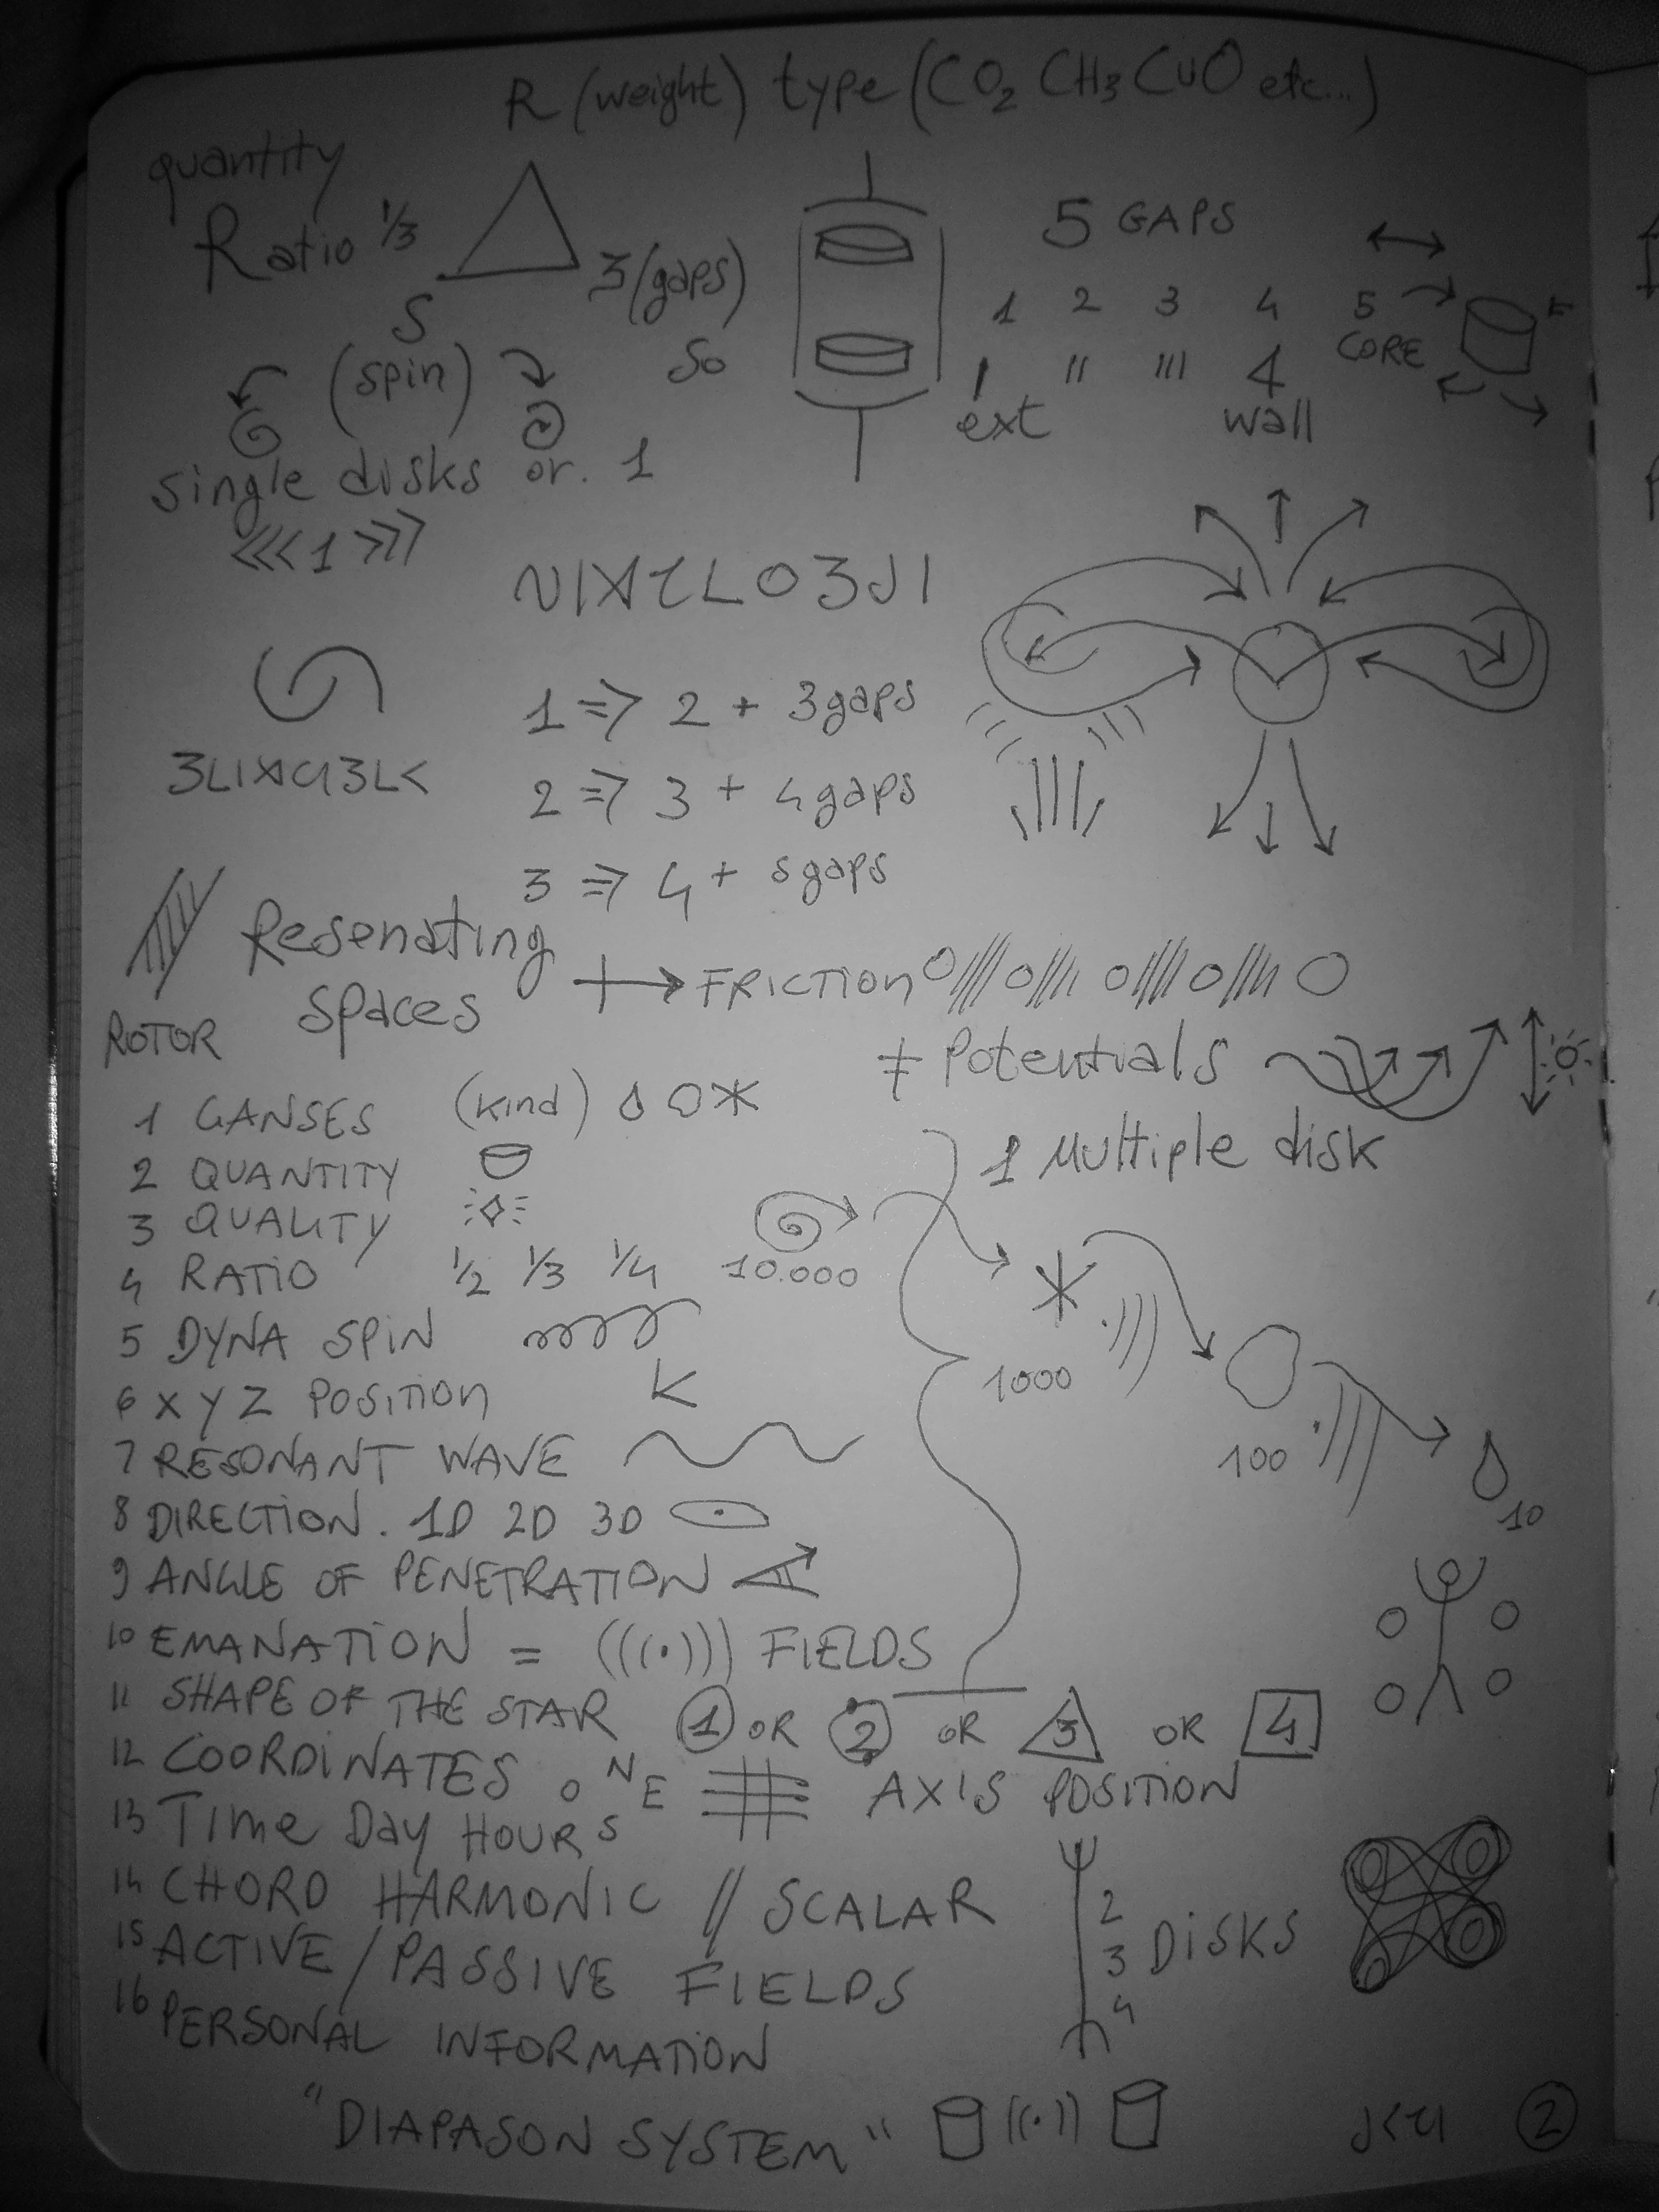 R (weight) type (CO2 CH3 CuO etc...)
quantity
Ratio 1/3
S
3 (gaps)
(spin)
So
single disks or. 1
<<<1>>>
5 GAPS
1 2 3 4 5
CORE
ext
4
wall
1 => 2 + 3 gaps
2 => 3 + 4 gaps
3 => 4 + 5 gaps
Resonating
spaces
→ FRICTION
ROTOR
≠ Potentials
1 Multiple disk
1 GANSES (kind)
2 QUANTITY
3 QUALITY
4 RATIO 1/2 1/3 1/4
10.000
5 DYNA SPIN
1000
6 X Y Z POSITION K
100
7 RESONANT WAVE
10
8 DIRECTION. 1D 2D 3D
9 ANGLE OF PENETRATION
10 EMANATION = (((·))) FIELDS
11 SHAPE OF THE STAR 1 OR 2 OR 3 OR 4
12 COORDINATES O N E S AXIS POSITION
13 Time Day HOUR
14 CHORD HARMONIC // SCALAR
15 ACTIVE / PASSIVE FIELDS
16 PERSONAL INFORMATION
2
3 DISKS
4
"DIAPASON SYSTEM" ((·))
2